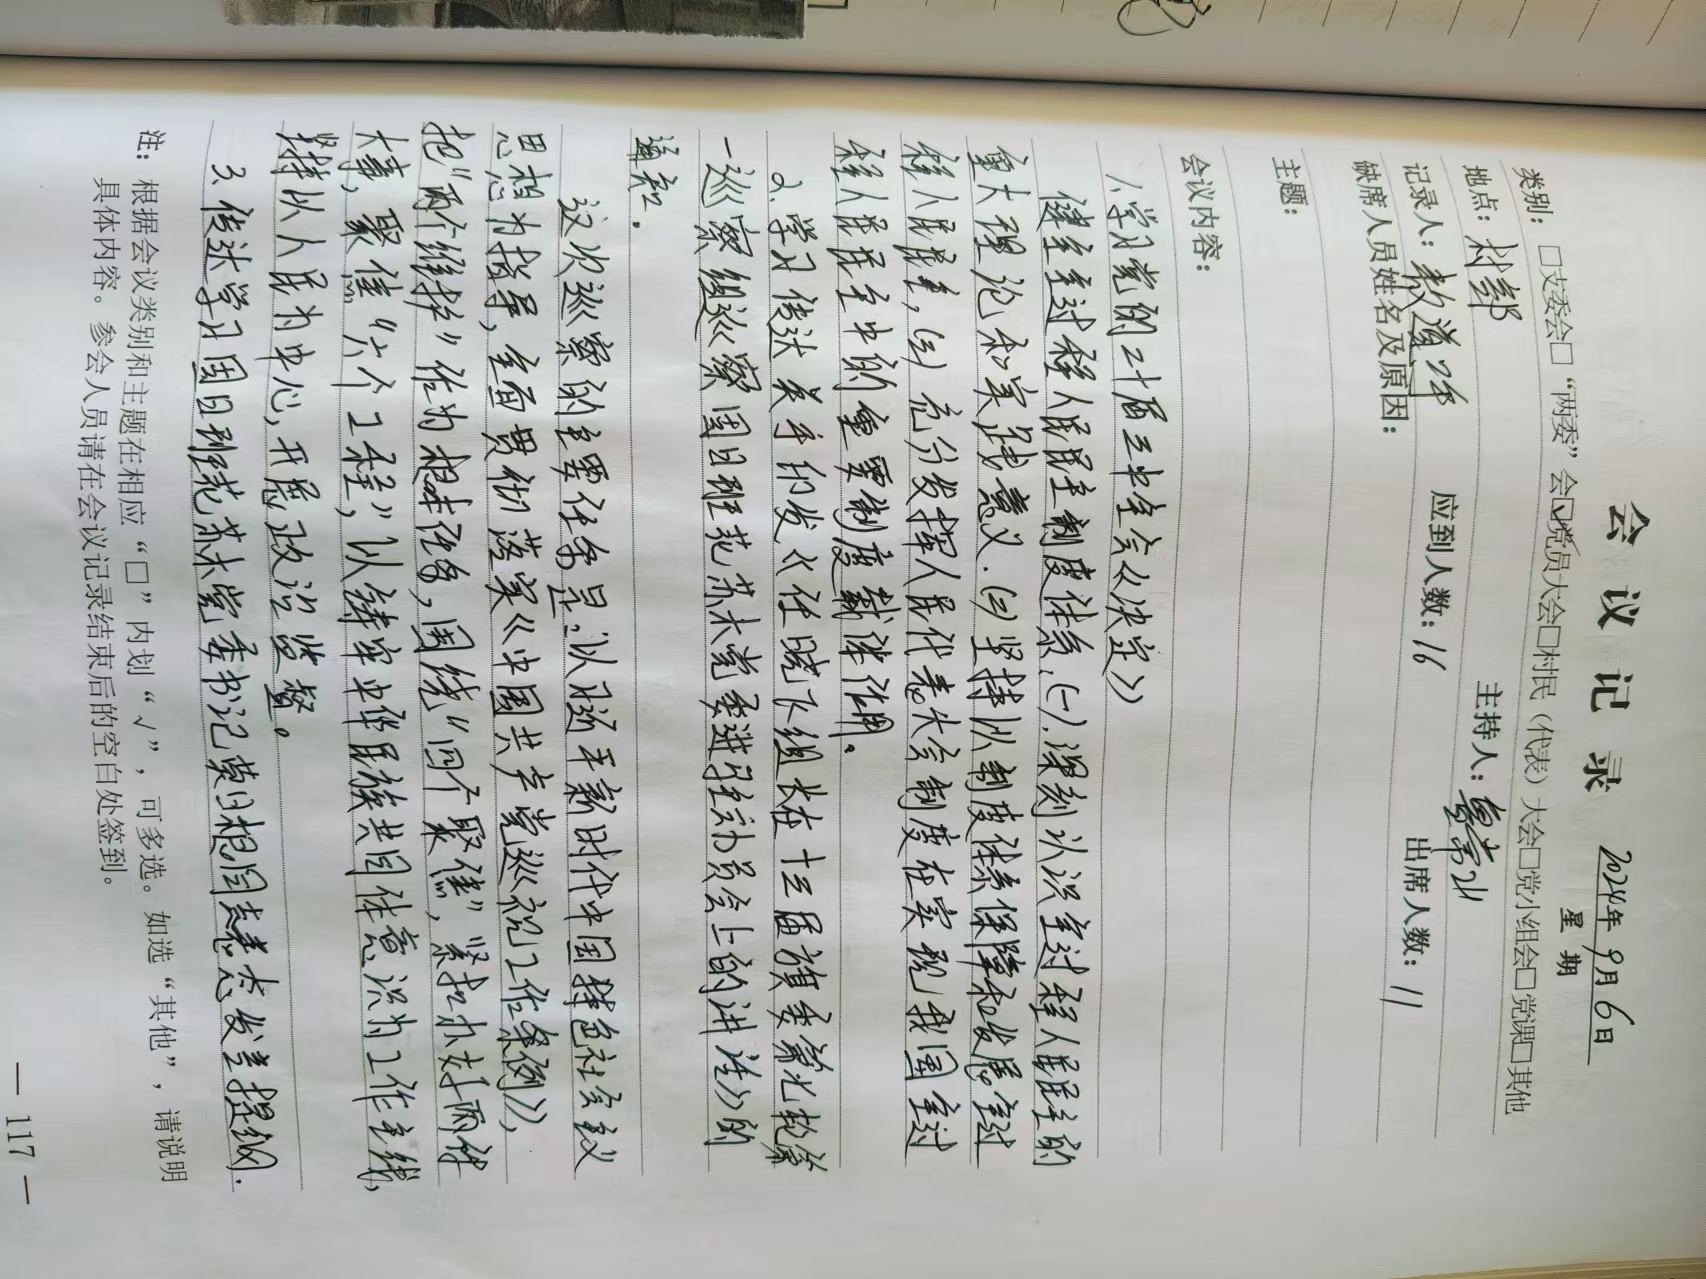 会 议 记 录
2024年9月6日
星 期
类别：□支委会□“两委”会☑党员大会□村民（代表）大会□党小组会□党课□其他
地点：村部 主持人：
记录人： 应到人数：16 出席人数：11
缺席人员姓名及原因：
主题：
会议内容：
1.学习党的二十届三中全会《决定》
健全全过程人民民主制度体系，(一).深刻认识全过程人民民主的
重大理论和实践意义.(二)坚持以制度体系保障和发展全过
程人民民主，(三)充分发挥人民代表大会制度在实现我国全过
程人民民主中的重要制度载体作用。
2.学习传达关于印发《任晓飞组长在十三届旗委第九轮第
一巡察组巡察固日班花苏木党委进驻动员会上的讲话》的
通知.
这次巡察的主要任务是,以习近平新时代中国特色社会主义
思想为指导,全面贯彻落实《中国共产党巡视工作条例》,
把“两个维护”作为根本任务,围绕“四个聚焦”,紧扣办好两件
大事,聚焦“六个工程”,以铸牢中华民族共同体意识为工作主线,
坚持以人民为中心,开展政治监督。
3.传达学习固日班花苏木党委书记 表态发言提纲.
注：根据会议类别和主题在相应“□”内划“√”，可多选。如选“其他”，请说明
具体内容。参会人员请在会议记录结束后的空白处签到。
— 117 —